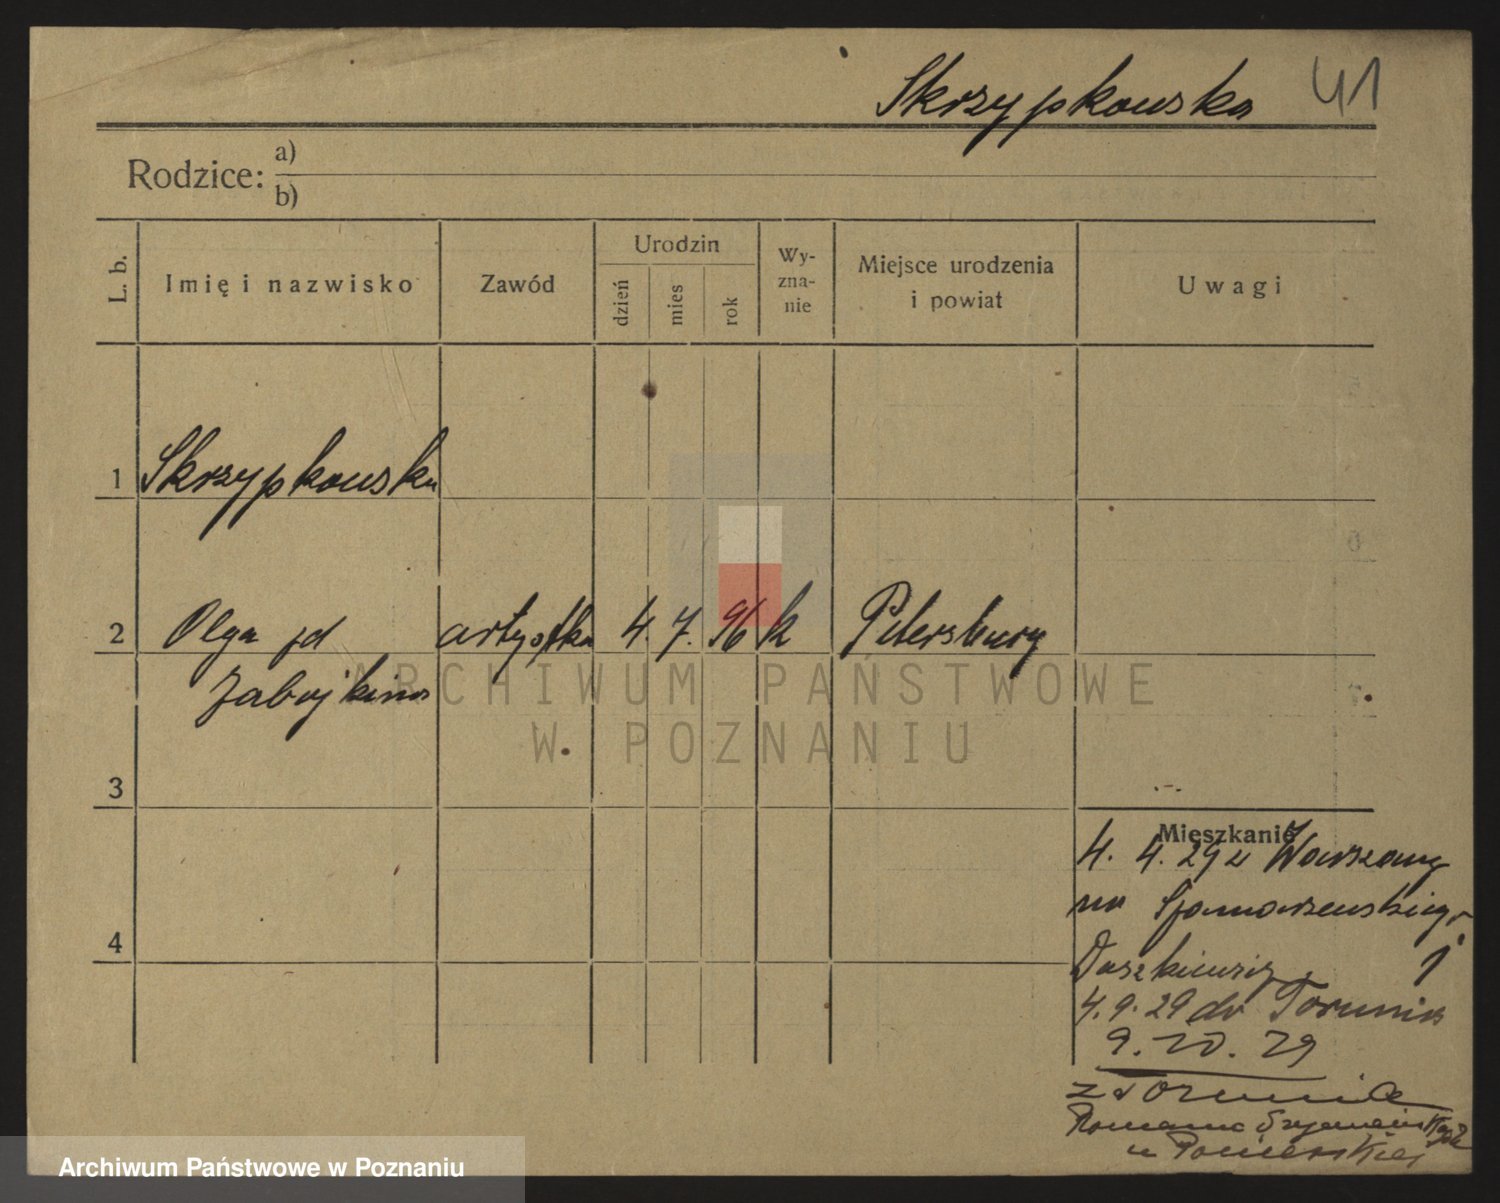 Skrzypkowska 41
Rodzice: a)
b)
L. b. Imię i nazwisko Zawód Urodzin dzień mies rok Wy-zna-nie Miejsce urodzenia i powiat Uwagi
1 Skrzypkowska
2 Olga jd artystka 4. 7. 96 k Petersburg
Zabojkina
ARCHIWUM PAŃSTWOWE
W POZNANIU
3
Mieszkanie
4. 4. 29 z Warszawy
na
4
Daszkiewicz 1
4. 9. 29 do Torunia
9. 10. 29
z Torunia
Romana Szymańskiego 2
u
Archiwum Państwowe w Poznaniu